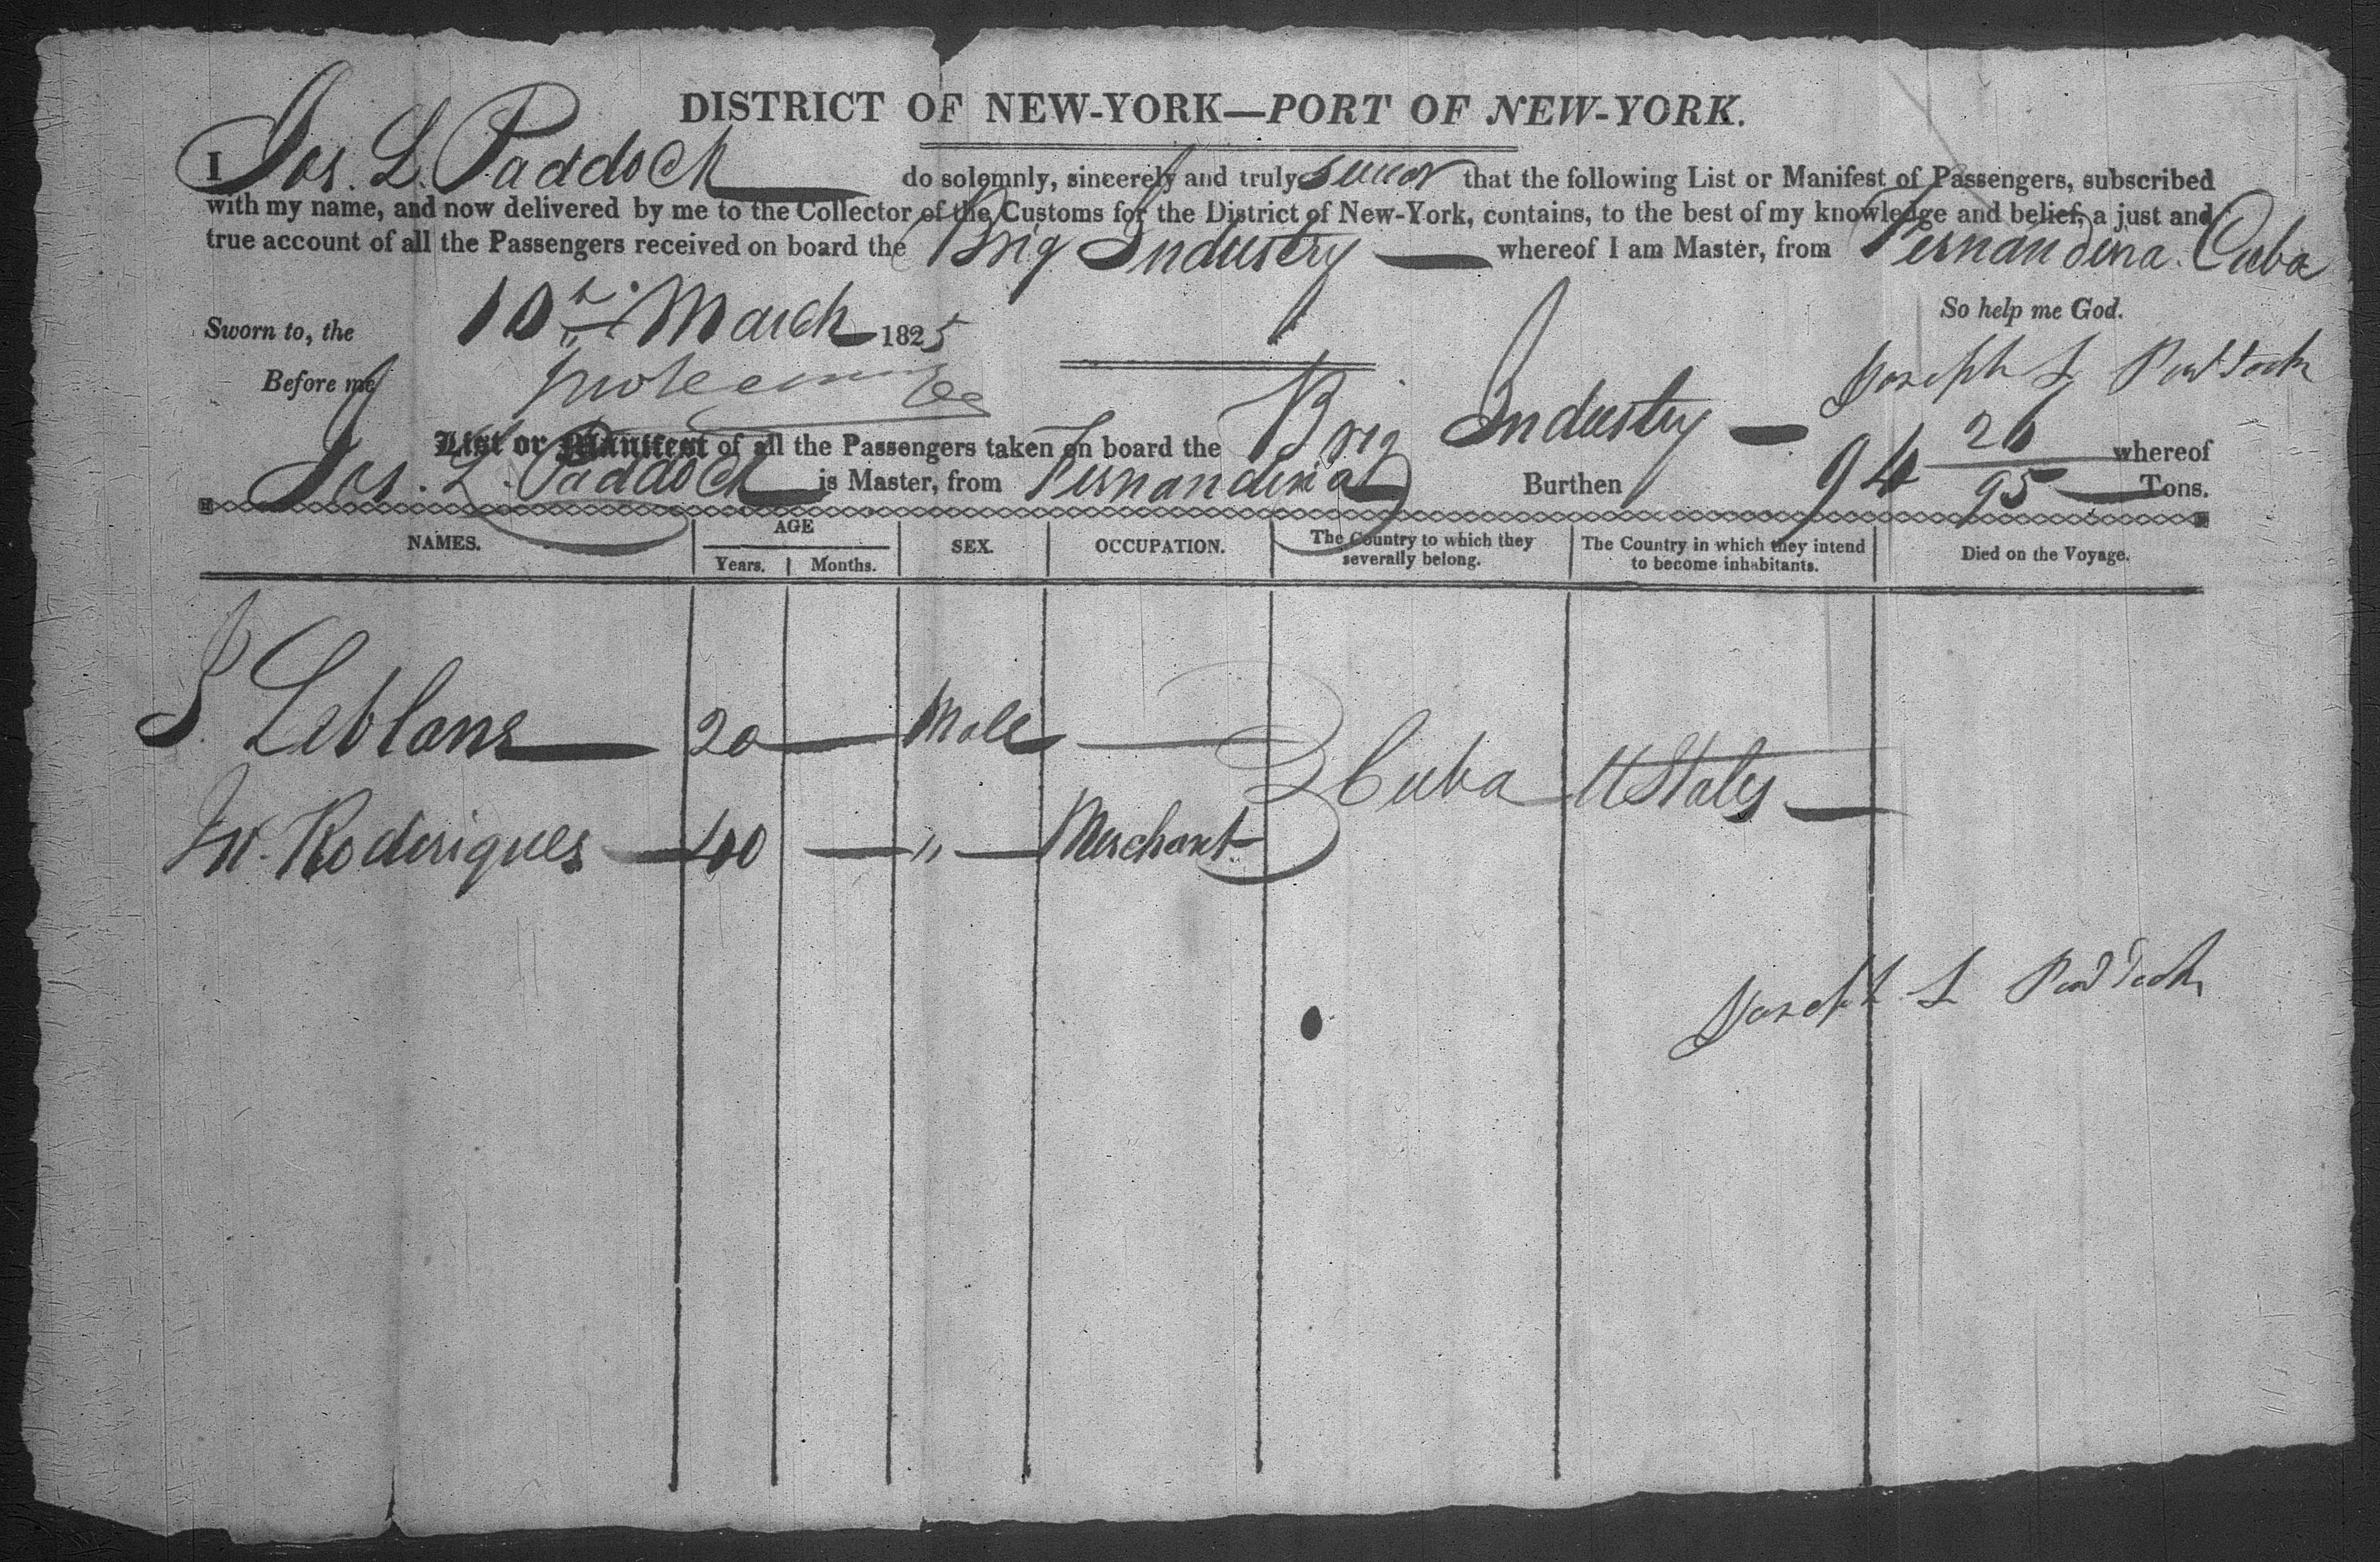 DISTRICT OF NEW-YORK—PORT OF NEW-YORK.
I Jos. L. Paddock do solemnly, sincerely and truly swear that the following List or Manifest of Passengers, subscribed
with my name, and now delivered by me to the Collector of the Customs for the District of New-York, contains, to the best of my knowledge and belief, a just and
true account of all the Passengers received on board the Brig Industry whereof I am Master, from Fernandina. Cuba
So help me God.
Sworn to, the 10th March 1825
Joseph L Paddock
Before me
List or Manifest of all the Passengers taken on board the Brig Industry — whereof
Jos. L. Paddock is Master, from Fernandina Burthen 94 26/95 Tons.
NAMES. AGE Years. Months. SEX. OCCUPATION. The Country to which they severally belong. The Country in which they intend to become inhabitants. Died on the Voyage.
J. Leblanc 20 — Male —
Cuba U States —
Roderiques — 40 — " — Merchant
Joseph L Paddock